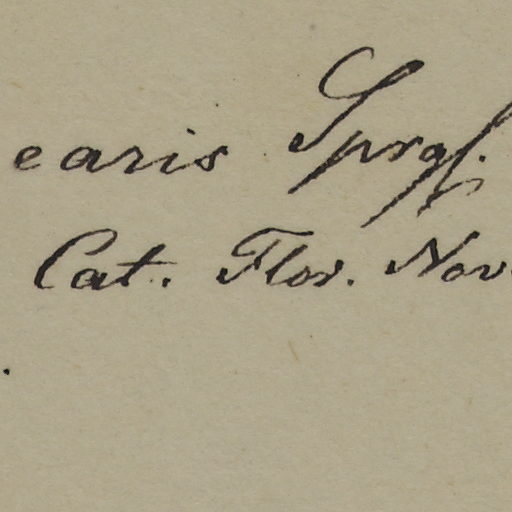 earis Sprgl.
Cat. Flor. Nov.